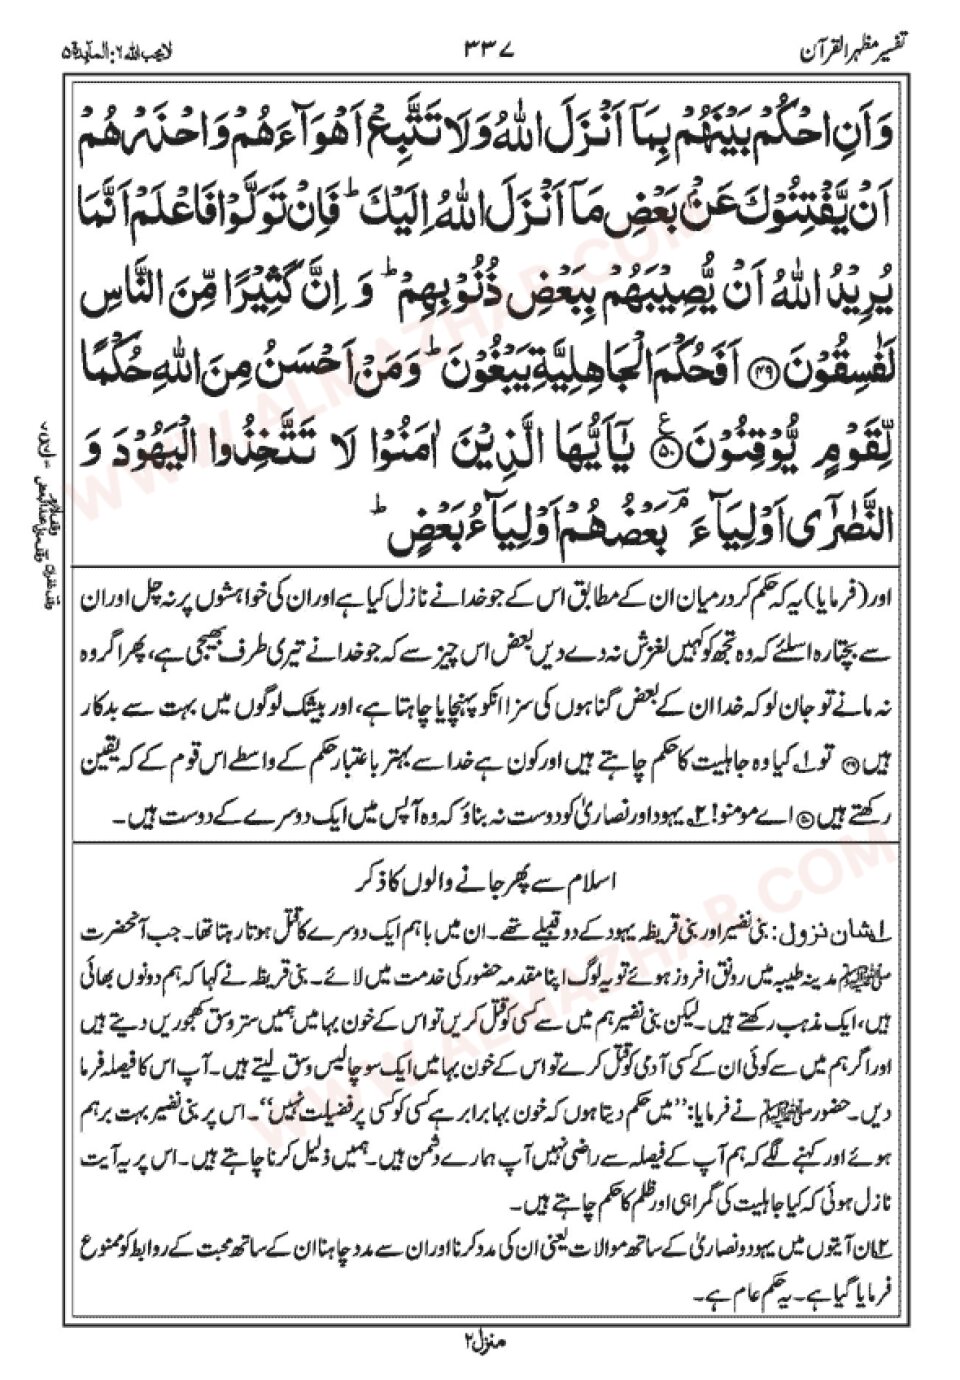 تفسیر مظہر القرآن
۳۳۷
لایحب اللہ ۶: المآىدۃ ۵
وَاَنِ احْكُمْ بَيْنَهُمْ بِمَآ اَنْزَلَ اللّٰهُ وَلَا تَتَّبِعْ اَهْوَآءَهُمْ وَاحْذَرْهُمْ
اَنْ يَّفْتِنُوْكَ عَنْۢ بَعْضِ مَآ اَنْزَلَ اللّٰهُ اِلَيْكَ ؕ فَاِنْ تَوَلَّوْا فَاعْلَمْ اَنَّمَا
يُرِيْدُ اللّٰهُ اَنْ يُّصِيْبَهُمْ بِبَعْضِ ذُنُوْبِهِمْ ؕ وَ اِنَّ كَثِيْرًا مِّنَ النَّاسِ
لَفٰسِقُوْنَ ﴿۴۹﴾ اَفَحُكْمَ الْجَاهِلِيَّةِ يَبْغُوْنَ ؕ وَمَنْ اَحْسَنُ مِنَ اللّٰهِ حُكْمًا
لِّقَوْمٍ يُّوْقِنُوْنَ ﴿۵۰﴾ ع يٰۤاَيُّهَا الَّذِيْنَ اٰمَنُوْا لَا تَتَّخِذُوا الْيَهُوْدَ وَ
النَّصٰرٰۤى اَوْلِيَآءَ ۘ بَعْضُهُمْ اَوْلِيَآءُ بَعْضٍ ؕ
اور (فرمایا) یہ کہ حکم کر درمیان ان کے مطابق اس کے جو خدا نے نازل کیا ہے اور ان کی خواہشوں پر نہ چل اور ان
سے بچتا رہ اسلئے کہ وہ تجھ کو کہیں لغزش نہ دے دیں بعض اس چیز سے کہ جو خدا نے تیری طرف بھیجی ہے، پھر اگر وہ
نہ مانے تو جان لو کہ خدا ان کے بعض گناہوں کی سزا انکو پہنچایا چاہتا ہے، اور بیشک لوگوں میں بہت سے بدکار
ہیں ﴿۴۹﴾ تو ۱؎ کیا وہ جاہلیت کا حکم چاہتے ہیں اور کون ہے خدا سے بہتر باعتبار حکم کے واسطے اس قوم کے کہ یقین
رکھتے ہیں ﴿۵۰﴾ اے مومنو! ۲؎ یہود اور نصاریٰ کو دوست نہ بناؤ کہ وہ آپس میں ایک دوسرے کے دوست ہیں۔
اسلام سے پھر جانے والوں کا ذکر
۱؎ شان نزول: بنی نضیر اور بنی قریظہ یہود کے دو قبیلے تھے۔ ان میں باہم ایک دوسرے کا قتل ہوتا رہتا تھا۔ جب آنحضرت
ﷺ مدینہ طیبہ میں رونق افروز ہوئے تو یہ لوگ اپنا مقدمہ حضور کی خدمت میں لائے۔ بنی قریظہ نے کہا کہ ہم دونوں بھائی
ہیں، ایک مذہب رکھتے ہیں۔ لیکن بنی نضیر ہم میں سے کسی کو قتل کریں تو اس کے خون بہا میں ہمیں ستر وسق کھجوریں دیتے ہیں
اور اگر ہم میں سے کوئی ان کے کسی آدمی کو قتل کرے تو اس کے خون بہا میں ایک سو چالیس وسق لیتے ہیں۔ آپ اس کا فیصلہ فرما
دیں۔ حضور ﷺ نے فرمایا: ”میں حکم دیتا ہوں کہ خون بہا برابر ہے کسی کو کسی پر فضیلت نہیں“۔ اس پر بنی نضیر بہت برہم
ہوئے اور کہنے لگے کہ ہم آپ کے فیصلہ سے راضی نہیں آپ ہمارے دشمن ہیں۔ ہمیں ذلیل کرنا چاہتے ہیں۔ اس پر یہ آیت
نازل ہوئی کہ کیا جاہلیت کی گمراہی اور ظلم کا حکم چاہتے ہیں۔
۲؎ ان آیتوں میں یہود و نصاریٰ کے ساتھ موالات یعنی ان کی مدد کرنا اور ان سے مدد چاہنا ان کے ساتھ محبت کے روابط کو ممنوع
فرمایا گیا ہے۔ یہ حکم عام ہے۔
منزل ۲
WWW.ALMAZHAR.COM
WWW.ALMAZHAR.COM